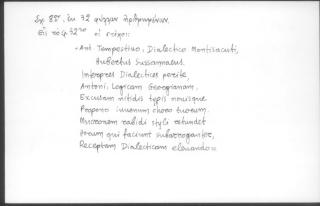 Σχ. 88º, ἐκ 32 φύλλων ἀριθμημένων.
Εἰς τὸ φ. 32ᵛᵒ οἱ στίχοι:
- Ant. Tempestivo, Dialectico Montisacuti,
Hubertus Sussannaeus.
Interpres Dialectices perite,
Antoni, Logicam Georgianam,
Excusam nitidis typis novisque
Propono iuvenum choro tuorum.
Mucronem rabidi styli retundet
Horum qui faciunt subarroganter,
Receptam Dialecticam elevando